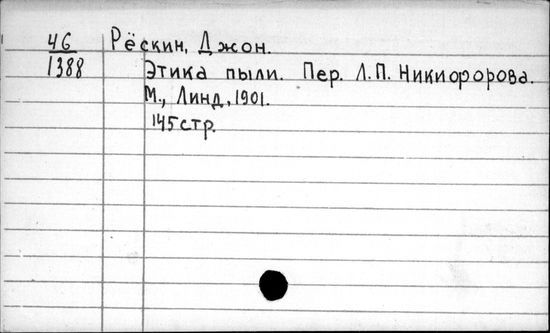 46
1388
Рёскин, Джон.
Этика пыли. Пер. Л.П. Никифорова.
М., Линд, 1901.
145 стр.